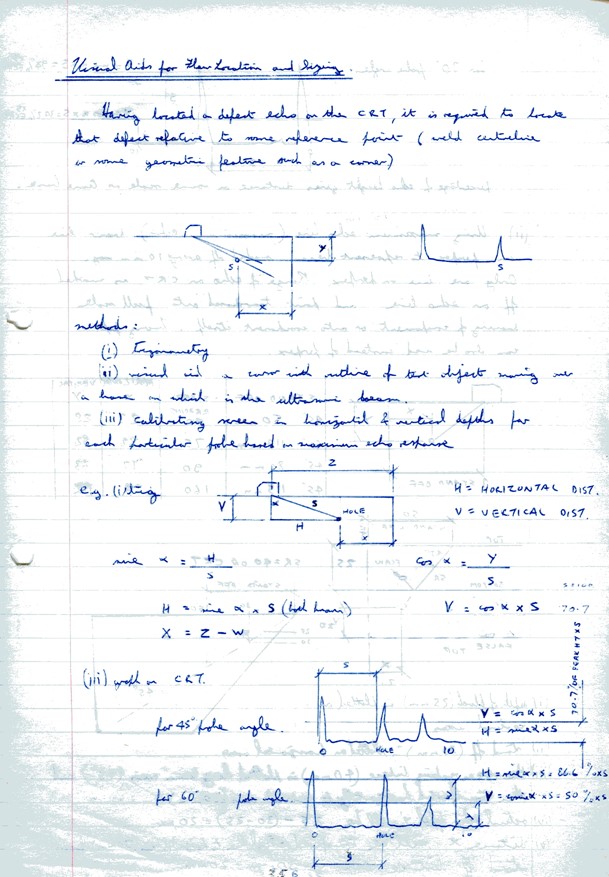 Visual Aids for Flaw Location and Sizing.
Having located a defect echo on the CRT, it is required to locate
that defect relative to some reference point (weld centreline
or some geometric feature such as a corner)
Y
S
X
S
methods:
(i) Trigonometry
(ii) visual aid a cursor with outline of test object moving over
a base on which is the ultrasonic beam.
(iii) calibrating screen in horizontal & vertical depths for
each particular probe based on maximum echo response
e.g. (i) trig
Z
V
α
S
HOLE
H
X
H = HORIZONTAL DIST.
V = VERTICAL DIST.
sine α = H
S
cos α = Y
S
H = sine α x S (both beam)
V = cos α x S
70.7
X = Z - W
70.7% OF PEAK HT x S
(iii) work on CRT.
S
for 45° probe angle.
0
HOLE
10
V = cos α x S
H = sine α x S
for 60° probe angle.
0
HOLE
10
S
H = sine α x S = 86.6 % x S
V = cosine α x S = 50 % x S